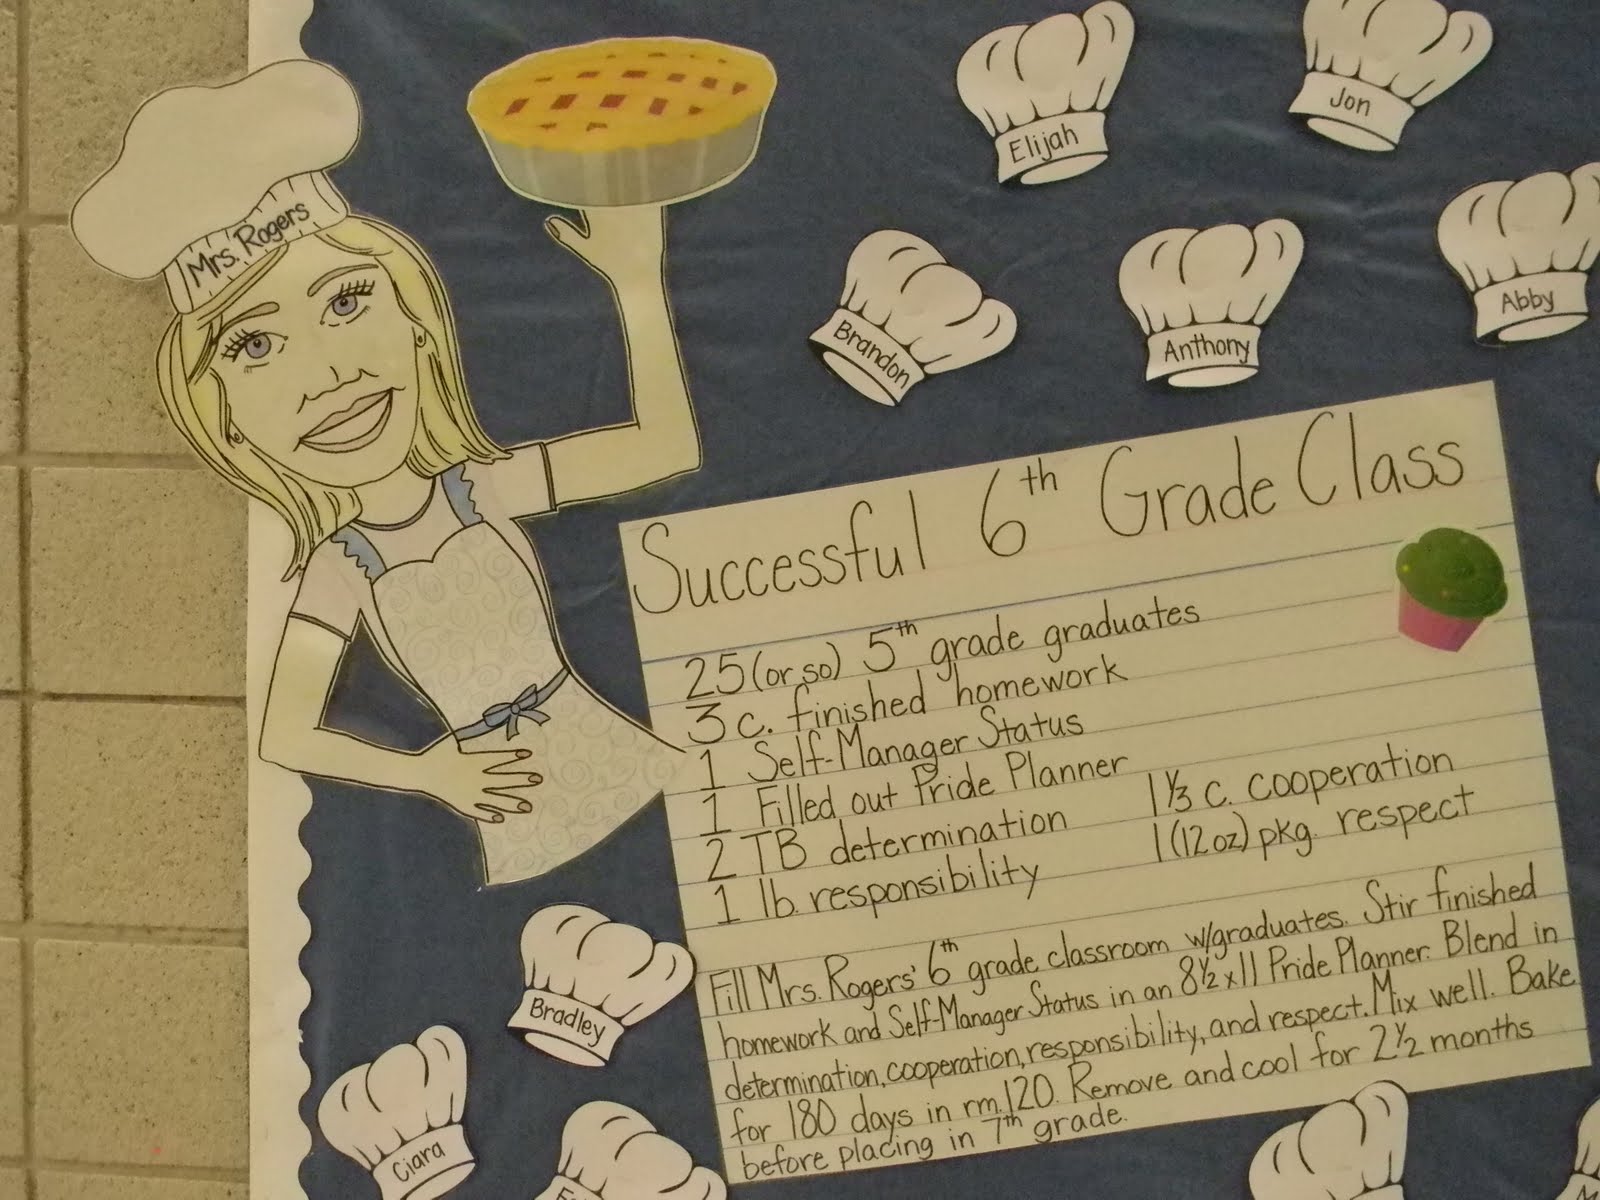 Mrs. Rogers
Elijah
Jon
Brandon
Anthony
Abby
Successful 6th Grade Class
25 (or so) 5th grade graduates
3 c. finished homework
1 Self-Manager Status
1 Filled out Pride Planner
2 TB determination
1 lb. responsibility
1 1/3 c. cooperation
1 (12 oz) pkg. respect
Fill Mrs. Rogers' 6th grade classroom w/graduates. Stir finished
homework and Self-Manager Status in an 8½ x 11 Pride Planner. Blend in
determination, cooperation, responsibility, and respect. Mix well. Bake
for 180 days in rm. 120. Remove and cool for 2½ months
before placing in 7th grade.
Bradley
Ciara